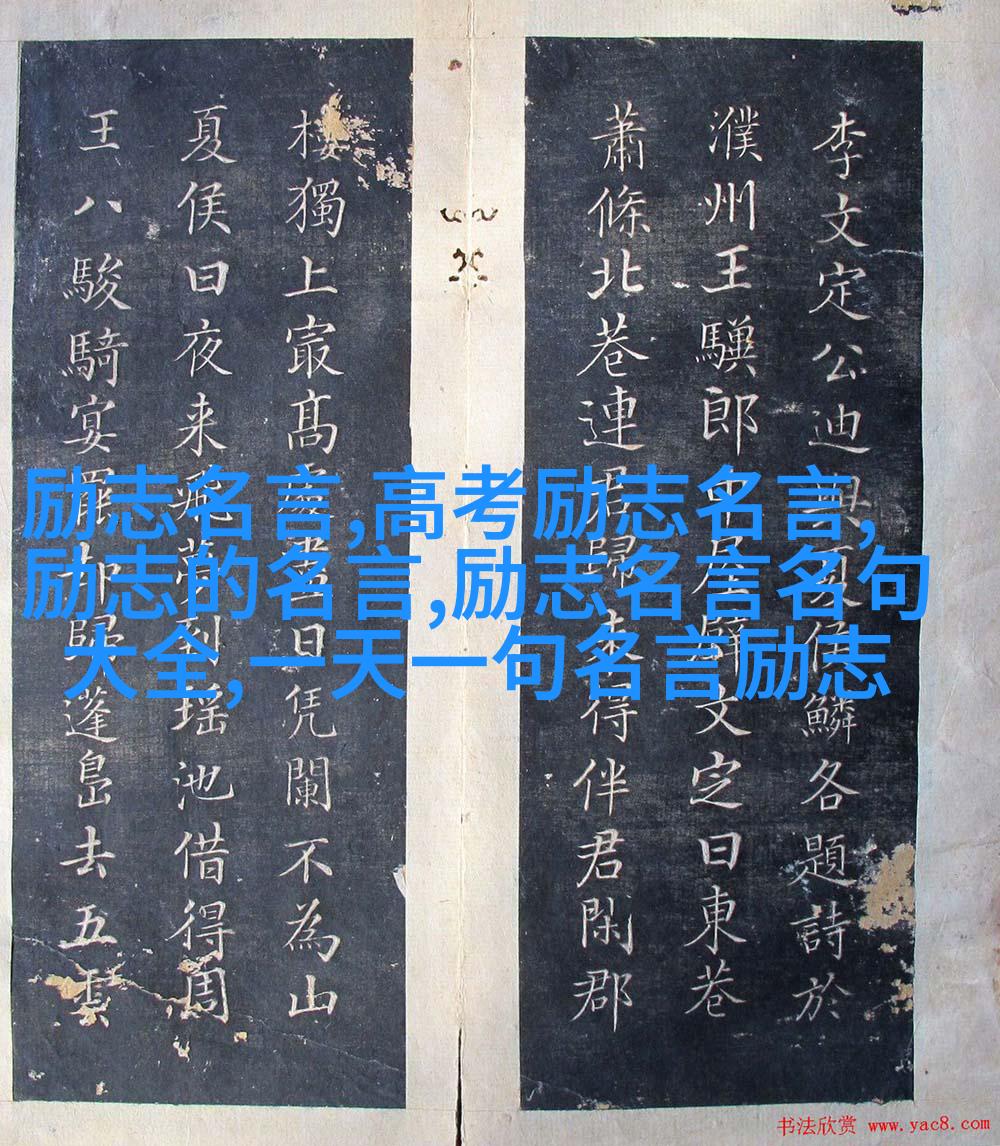 李文定公迪與夏侯鱗各題詩於
濮州王驥郎中屋壁文定曰東巷
蕭條北巷連君歸未得伴君閑郡
樓獨上寂高處盡日凭闌不為山
夏侯曰夜来飛夢到瑶池借得周
王八駿騎宴罷却歸蓬島去五雲
励志名言,高考励志名言,
励志的名言,励志名言名句
大全,一天一句名言励志
书法欣赏 www.yac8.com